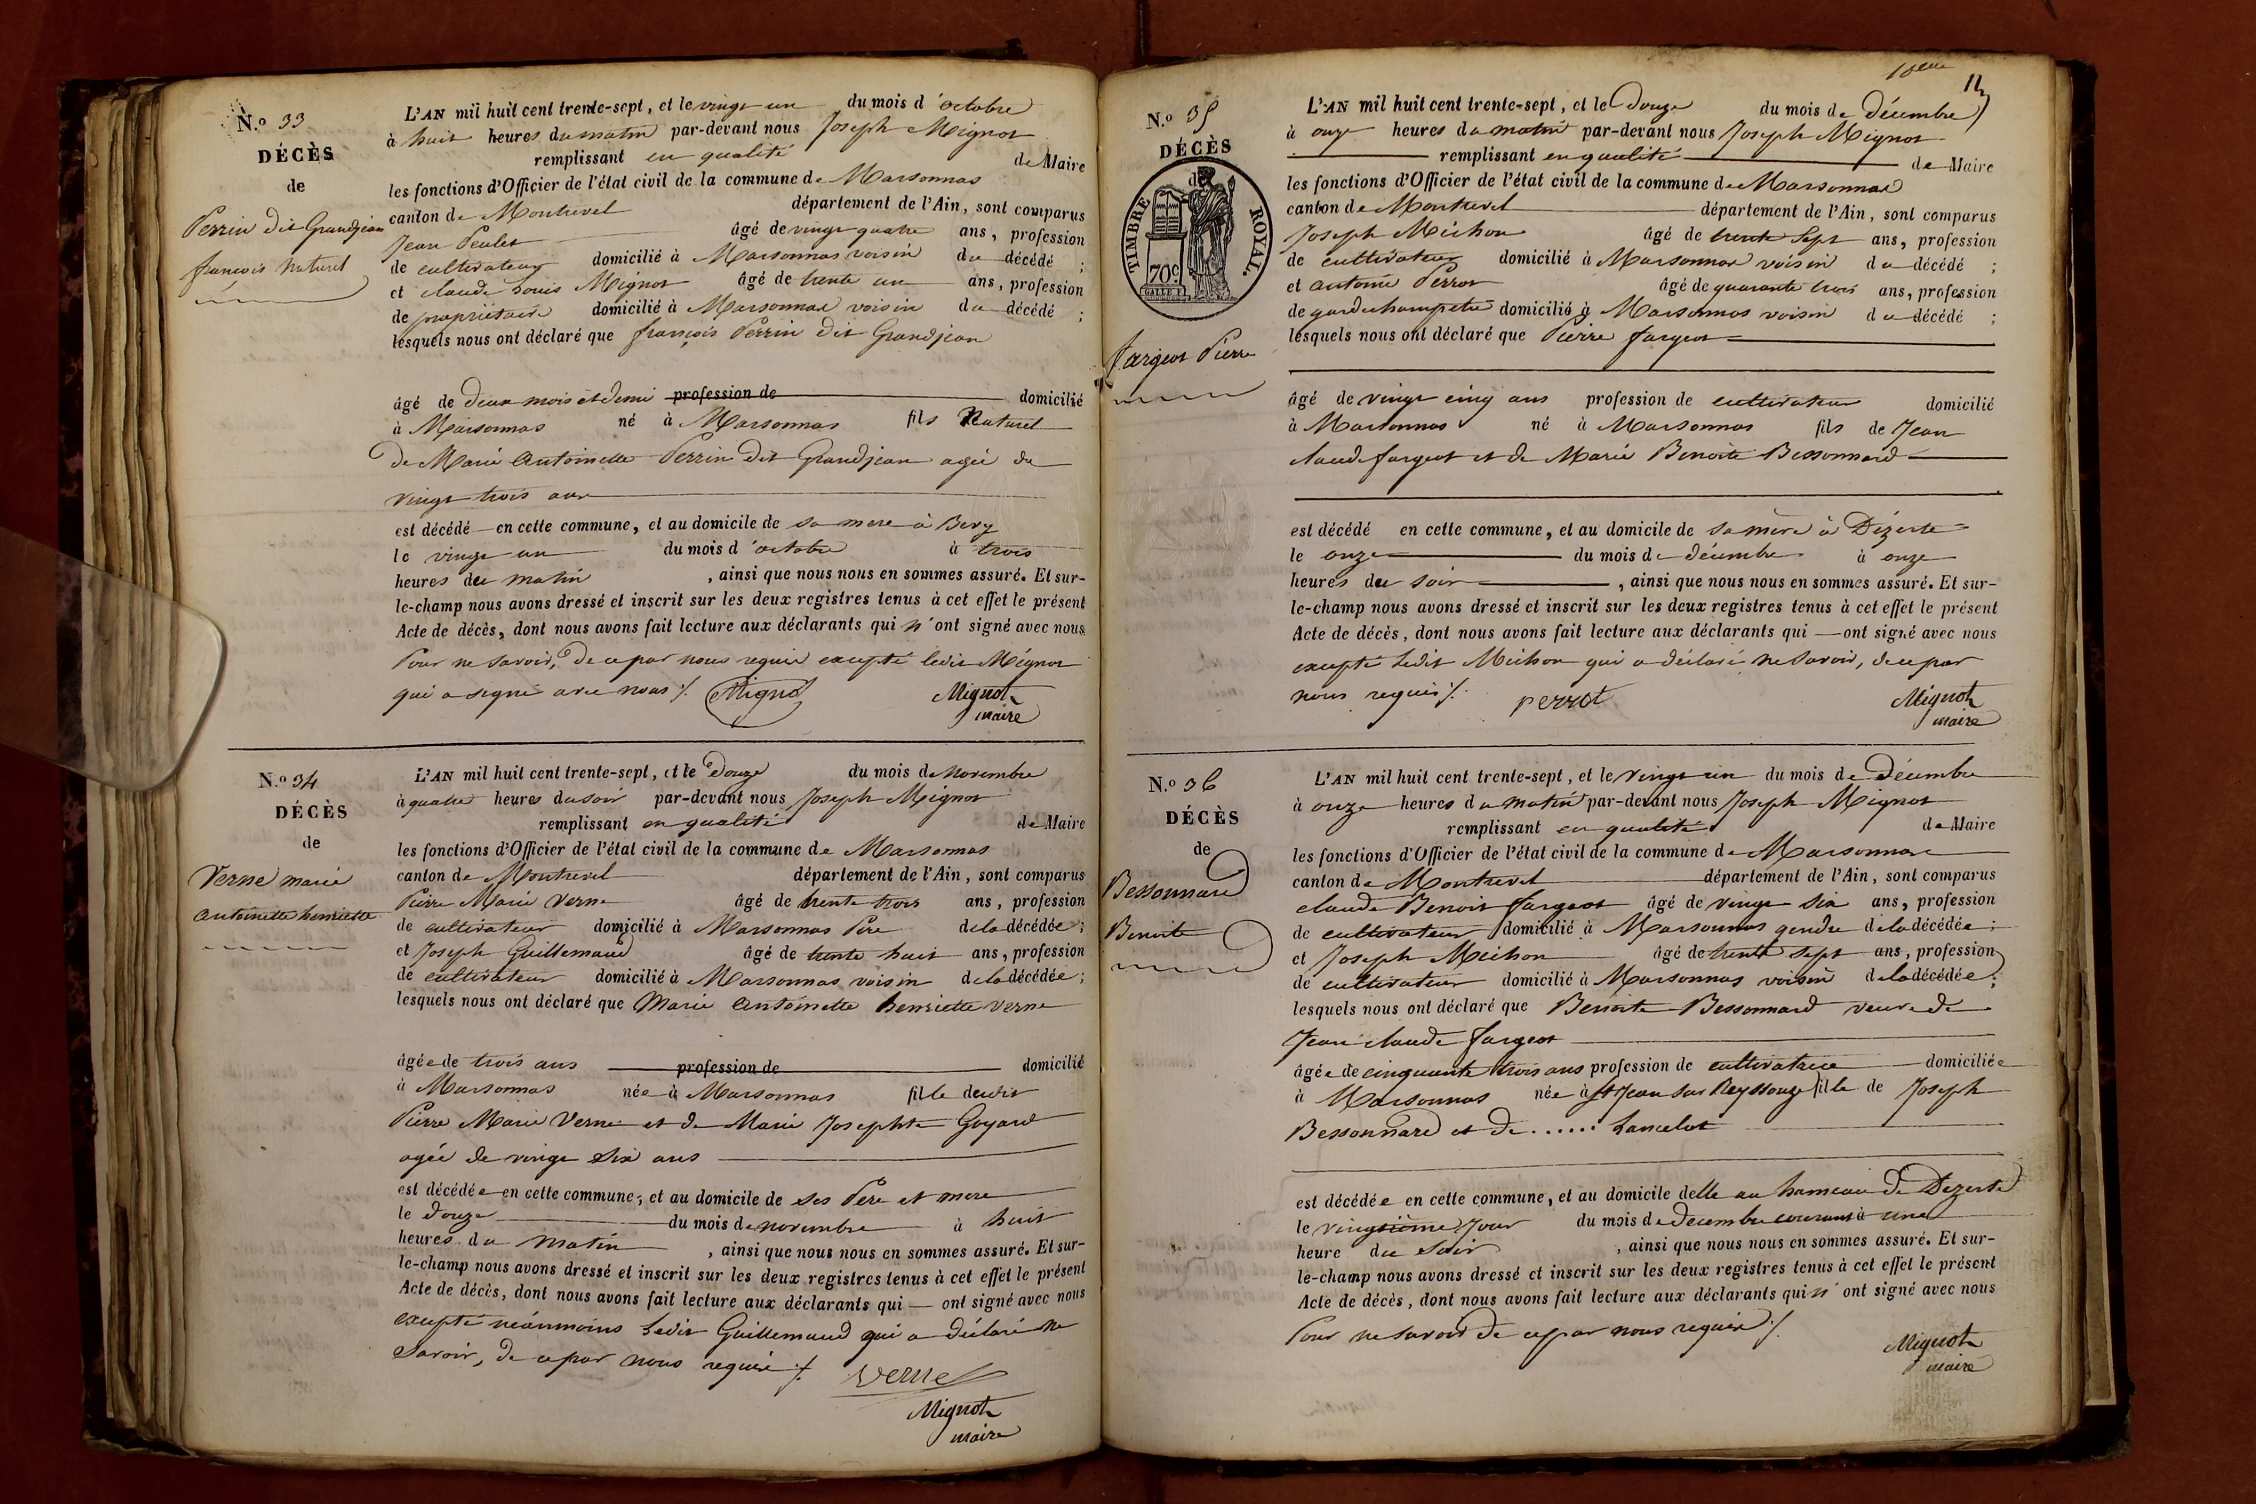 N.º 33
DÉCÈS
de
Perrin dit Grandjean
françois naturel
L'AN mil huit cent trente-sept, et le vingt un du mois d'octobre
à huit heures du matin par-devant nous Joseph Mignot
remplissant en qualité de Maire
les fonctions d'Officier de l'état civil de la commune de Marsonnas
canton de Montrevel département de l'Ain, sont comparus
Jean Peulet âgé de vingt quatre ans, profession
de cultivateur domicilié à Marsonnas voisin du décédé ;
et claude Louis Mignot âgé de trente un ans, profession
de propriétaire domicilié à Marsonnas voisin du décédé ;
lesquels nous ont déclaré que françois Perrin dit Grandjean
âgé de deux mois et demi profession de domicilié
à Marsonnas né à Marsonnas fils Naturel
de Marie Antoinette Perrin dit Grandjean agée de
vingt trois ans
est décédé en cette commune, et au domicile de sa mere à Bevy
le vingt un du mois d'octobre à trois
heures du matin, ainsi que nous nous en sommes assuré. Et sur-
le-champ nous avons dressé et inscrit sur les deux registres tenus à cet effet le présent
Acte de décès, dont nous avons fait lecture aux déclarants qui n'ont signé avec nous
Pour ne savoir, de ce par nous requis excepté ledit Mignot
qui a signé avec nous ⁒ Mignot Mignot
maire
N.º 34
DÉCÈS
de
Verne marie
antoinette henriette
L'AN mil huit cent trente-sept, et le Douze du mois de novembre
à quatre heures du soir par-devant nous Joseph Mignot
remplissant en qualité de Maire
les fonctions d'Officier de l'état civil de la commune de Marsonnas
canton de Montrevel département de l'Ain, sont comparus
Pierre Marie Verne âgé de trente trois ans, profession
de cultivateur domicilié à Marsonnas Père de la décédée ;
et Joseph Guillemaud âgé de trente huit ans, profession
de cultivateur domicilié à Marsonnas voisin de la décédée ;
lesquels nous ont déclaré que Marie Antoinette henriette Verne
âgée de trois ans profession de domicilié
à Marsonnas née à Marsonnas fille dudit
Pierre Marie Verne et de Marie Josephte Goyard
agée de vingt six ans
est décédée en cette commune, et au domicile de ses Père et mere
le douze du mois de novembre à huit
heures du matin, ainsi que nous nous en sommes assuré. Et sur-
le-champ nous avons dressé et inscrit sur les deux registres tenus à cet effet le présent
Acte de décès, dont nous avons fait lecture aux déclarants qui ont signé avec nous
excepté néanmoins ledit Guillemaud qui a déclaré ne
savoir, de ce par nous requis ⁒ verne
Mignot
maire
10eme
12
N.º 35
DÉCÈS
de
TIMBRE ROYAL.
70c.
Fargeot Pierre
L'AN mil huit cent trente-sept, et le Douze du mois de décembre
à onze heures du matin par-devant nous Joseph Mignot
remplissant en qualité de Maire
les fonctions d'Officier de l'état civil de la commune de Marsonnas
canton de Montrevel département de l'Ain, sont comparus
Joseph Michon âgé de trente sept ans, profession
de cultivateur domicilié à Marsonnas voisin du décédé ;
et antoine Perrot âgé de quarante trois ans, profession
de garde champetre domicilié à Marsonnas voisin du décédé ;
lesquels nous ont déclaré que Pierre fargeot
âgé de vingt cinq ans profession de cultivateur domicilié
à Marsonnas né à Marsonnas fils de Jean
claude fargeot et de Marie Benoite Bessonnard
est décédé en cette commune, et au domicile de sa mère à Dézerte
le onze du mois de décembre à onze
heures du soir, ainsi que nous nous en sommes assuré. Et sur-
le-champ nous avons dressé et inscrit sur les deux registres tenus à cet effet le présent
Acte de décès, dont nous avons fait lecture aux déclarants qui ont signé avec nous
excepté ledit Michon qui a déclaré ne savoir, de ce par
nous requis ⁒ perrot Mignot
maire
N.º 36
DÉCÈS
de
Bessonnard
Benoite
L'AN mil huit cent trente-sept, et le vingt un du mois de décembre
à onze heures du matin par-devant nous Joseph Mignot
remplissant en qualité de Maire
les fonctions d'Officier de l'état civil de la commune de Marsonnas
canton de Montrevel département de l'Ain, sont comparus
claude Benoit fargeot âgé de vingt six ans, profession
de cultivateur domicilié à Marsonnas gendre de la décédée ;
et Joseph Michon âgé de trente sept ans, profession
de cultivateur domicilié à Marsonnas voisin de la décédée ;
lesquels nous ont déclaré que Benoite Bessonnard veuve de
Jean claude fargeot
âgée de cinquante trois ans profession de cultivatrice domiciliée
à Marsonnas née à St Jean sur Reyssouze fille de Joseph
Bessonnard et de ...... Lancelot
est décédée en cette commune, et au domicile delle au hameau de Dezerte
le vingtième Jour du mois de decembre courant à une
heure du soir, ainsi que nous nous en sommes assuré. Et sur-
le-champ nous avons dressé et inscrit sur les deux registres tenus à cet effet le présent
Acte de décès, dont nous avons fait lecture aux déclarants qui n'ont signé avec nous
Pour ne savoir de ce par nous requis ⁒
Mignot
maire